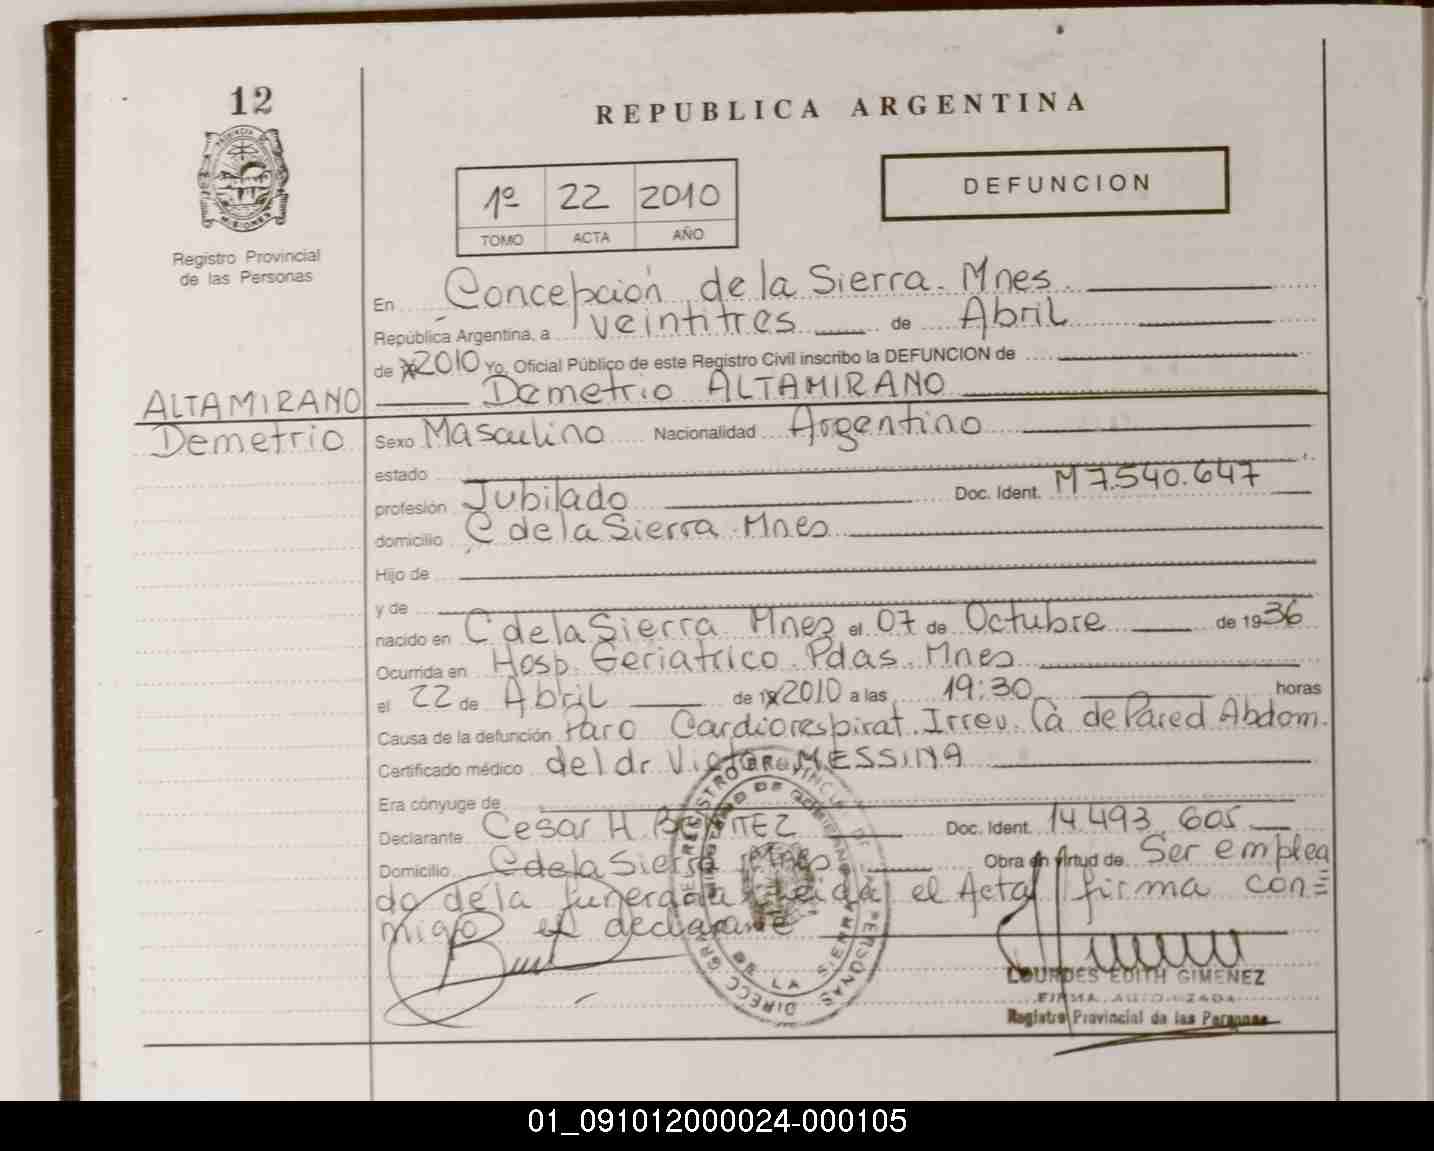 12
REPUBLICA ARGENTINA
1º 22 2010
TOMO ACTA AÑO
DEFUNCION
PROVINCIA DE MISIONES
Registro Provincial
de las Personas
En Concepción de la Sierra. Mnes.
República Argentina, a veintitres de Abril
de 2010 Yo, Oficial Público de este Registro Civil inscribo la DEFUNCION de
ALTAMIRANO Demetrio ALTAMIRANO
Demetrio Sexo Masculino Nacionalidad Argentino
estado
profesión Jubilado Doc. Ident. M 7.540.647
domicilio C de la Sierra Mnes
Hijo de
y de
nacido en C de la Sierra Mnes el 07 de Octubre de 1936
Ocurrida en Hosp. Geriatrico. Pdas. Mnes
el 22 de Abril de 2010 a las 19:30 horas
Causa de la defunción Paro Cardiorespirat. Irrev. Ca de Pared Abdom.
Certificado médico del dr Victor MESSINA
Era cónyuge de
Declarante Cesar H. BENITEZ Doc. Ident. 14.493.605
Domicilio C de la Sierra Mnes Obra en virtud de Ser emplea
do de la funeraria leida el Acta firma con=
migo el declarante
DIRECC GRAL DE REGISTRO PROVINCIAL DE PERSONAS
MINISTERIO DE GOBIERNO
DE LA SIERRA
LOURDES EDITH GIMENEZ
FIRMA AUTORIZADA
Registro Provincial de las Personas
01_091012000024-000105